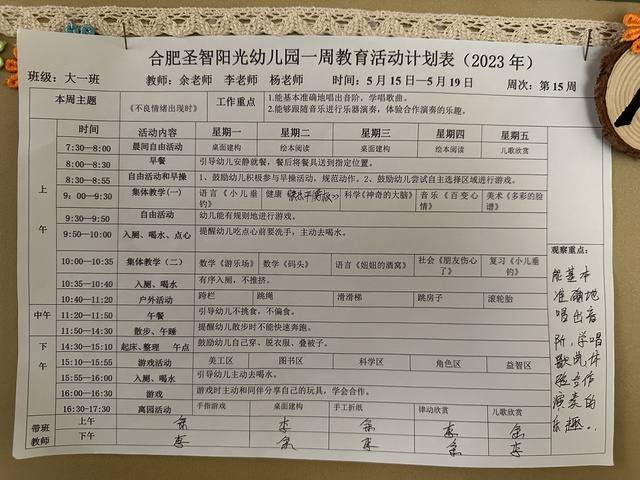 合肥圣智阳光幼儿园一周教育活动计划表（2023 年）
班级：大一班 教师：余老师 李老师 杨老师 时间：5 月 15 日—5 月 19 日 周次：第 15 周
本周主题 《不良情绪出现时》 工作重点 1.能基本准确地唱出音阶，学唱歌曲。
2.能够跟随音乐进行乐器演奏，体验合作演奏的乐趣。
时间 活动内容 星期一 星期二 星期三 星期四 星期五
上午
7:30—8:00 晨间自由活动 桌面建构 绘本阅读 桌面建构 绘本阅读 儿歌欣赏
8:00—8:30 早餐 引导幼儿安静就餐，餐后将餐具送到指定位置。
8:30—8:55 自由活动和早操 1、鼓励幼儿积极参与早操活动，规范动作。2、鼓励幼儿尝试自主选择区域进行游戏。
9：00—9:30 集体教学(一) 语言《小儿垂钓》 健康 科学《神奇的大脑》 音乐《百变心情》 美术《多彩的脸谱》
9:30—9:50 自由活动 幼儿能有规则地进行游戏。
9:50—10:00 入厕、喝水、点心 提醒幼儿吃点心前要洗手，主动去喝水。
10:00—10:35 集体教学（二） 数学《游乐场》 数学《码头》 语言《妞妞的酒窝》 社会《朋友伤心了》 复习《小儿垂钓》
10:35—10:40 入厕、喝水 有序入厕，不推挤。
10:40—11:20 户外活动 跨栏 跳绳 滑滑梯 跳房子 滚轮胎
中午
11:20—11:50 午餐 引导幼儿不挑食，不偏食。
11:50—14:30 散步、午睡 提醒幼儿散步时不能快速奔跑。
下午
14:30—15:10 起床、整理 午点 鼓励幼儿自己穿、脱衣服、叠被子。
15:10—15:55 游戏活动 美工区 图书区 科学区 角色区 益智区
15:55—16:00 入厕、喝水 引导幼儿主动去喝水。
16:00—16:30 游戏 游戏时主动和同伴分享自己的玩具，学会合作。
16:30-17:30 离园活动 手指游戏 桌面建构 手工折纸 律动欣赏 儿歌欣赏
带班教师 上午 余 李 余 李 余
下午 李 余 李 余 李
观察重点：
能基本
准确地
唱出音
阶，学唱
歌曲，体
验合作
演奏的
乐趣。